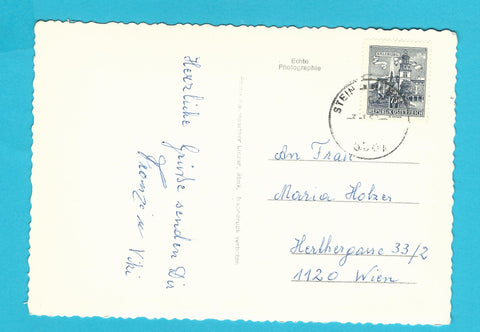 Herzliche Grüße senden Dir
Franzi u Viki
Echte
Photographie
REPUBLIK ÖSTERREICH
STEIN
An Frau
Maria Holzer
Herthergasse 33/2
1120 Wien